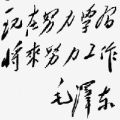 现在努力學習
將來努力工作
毛澤東